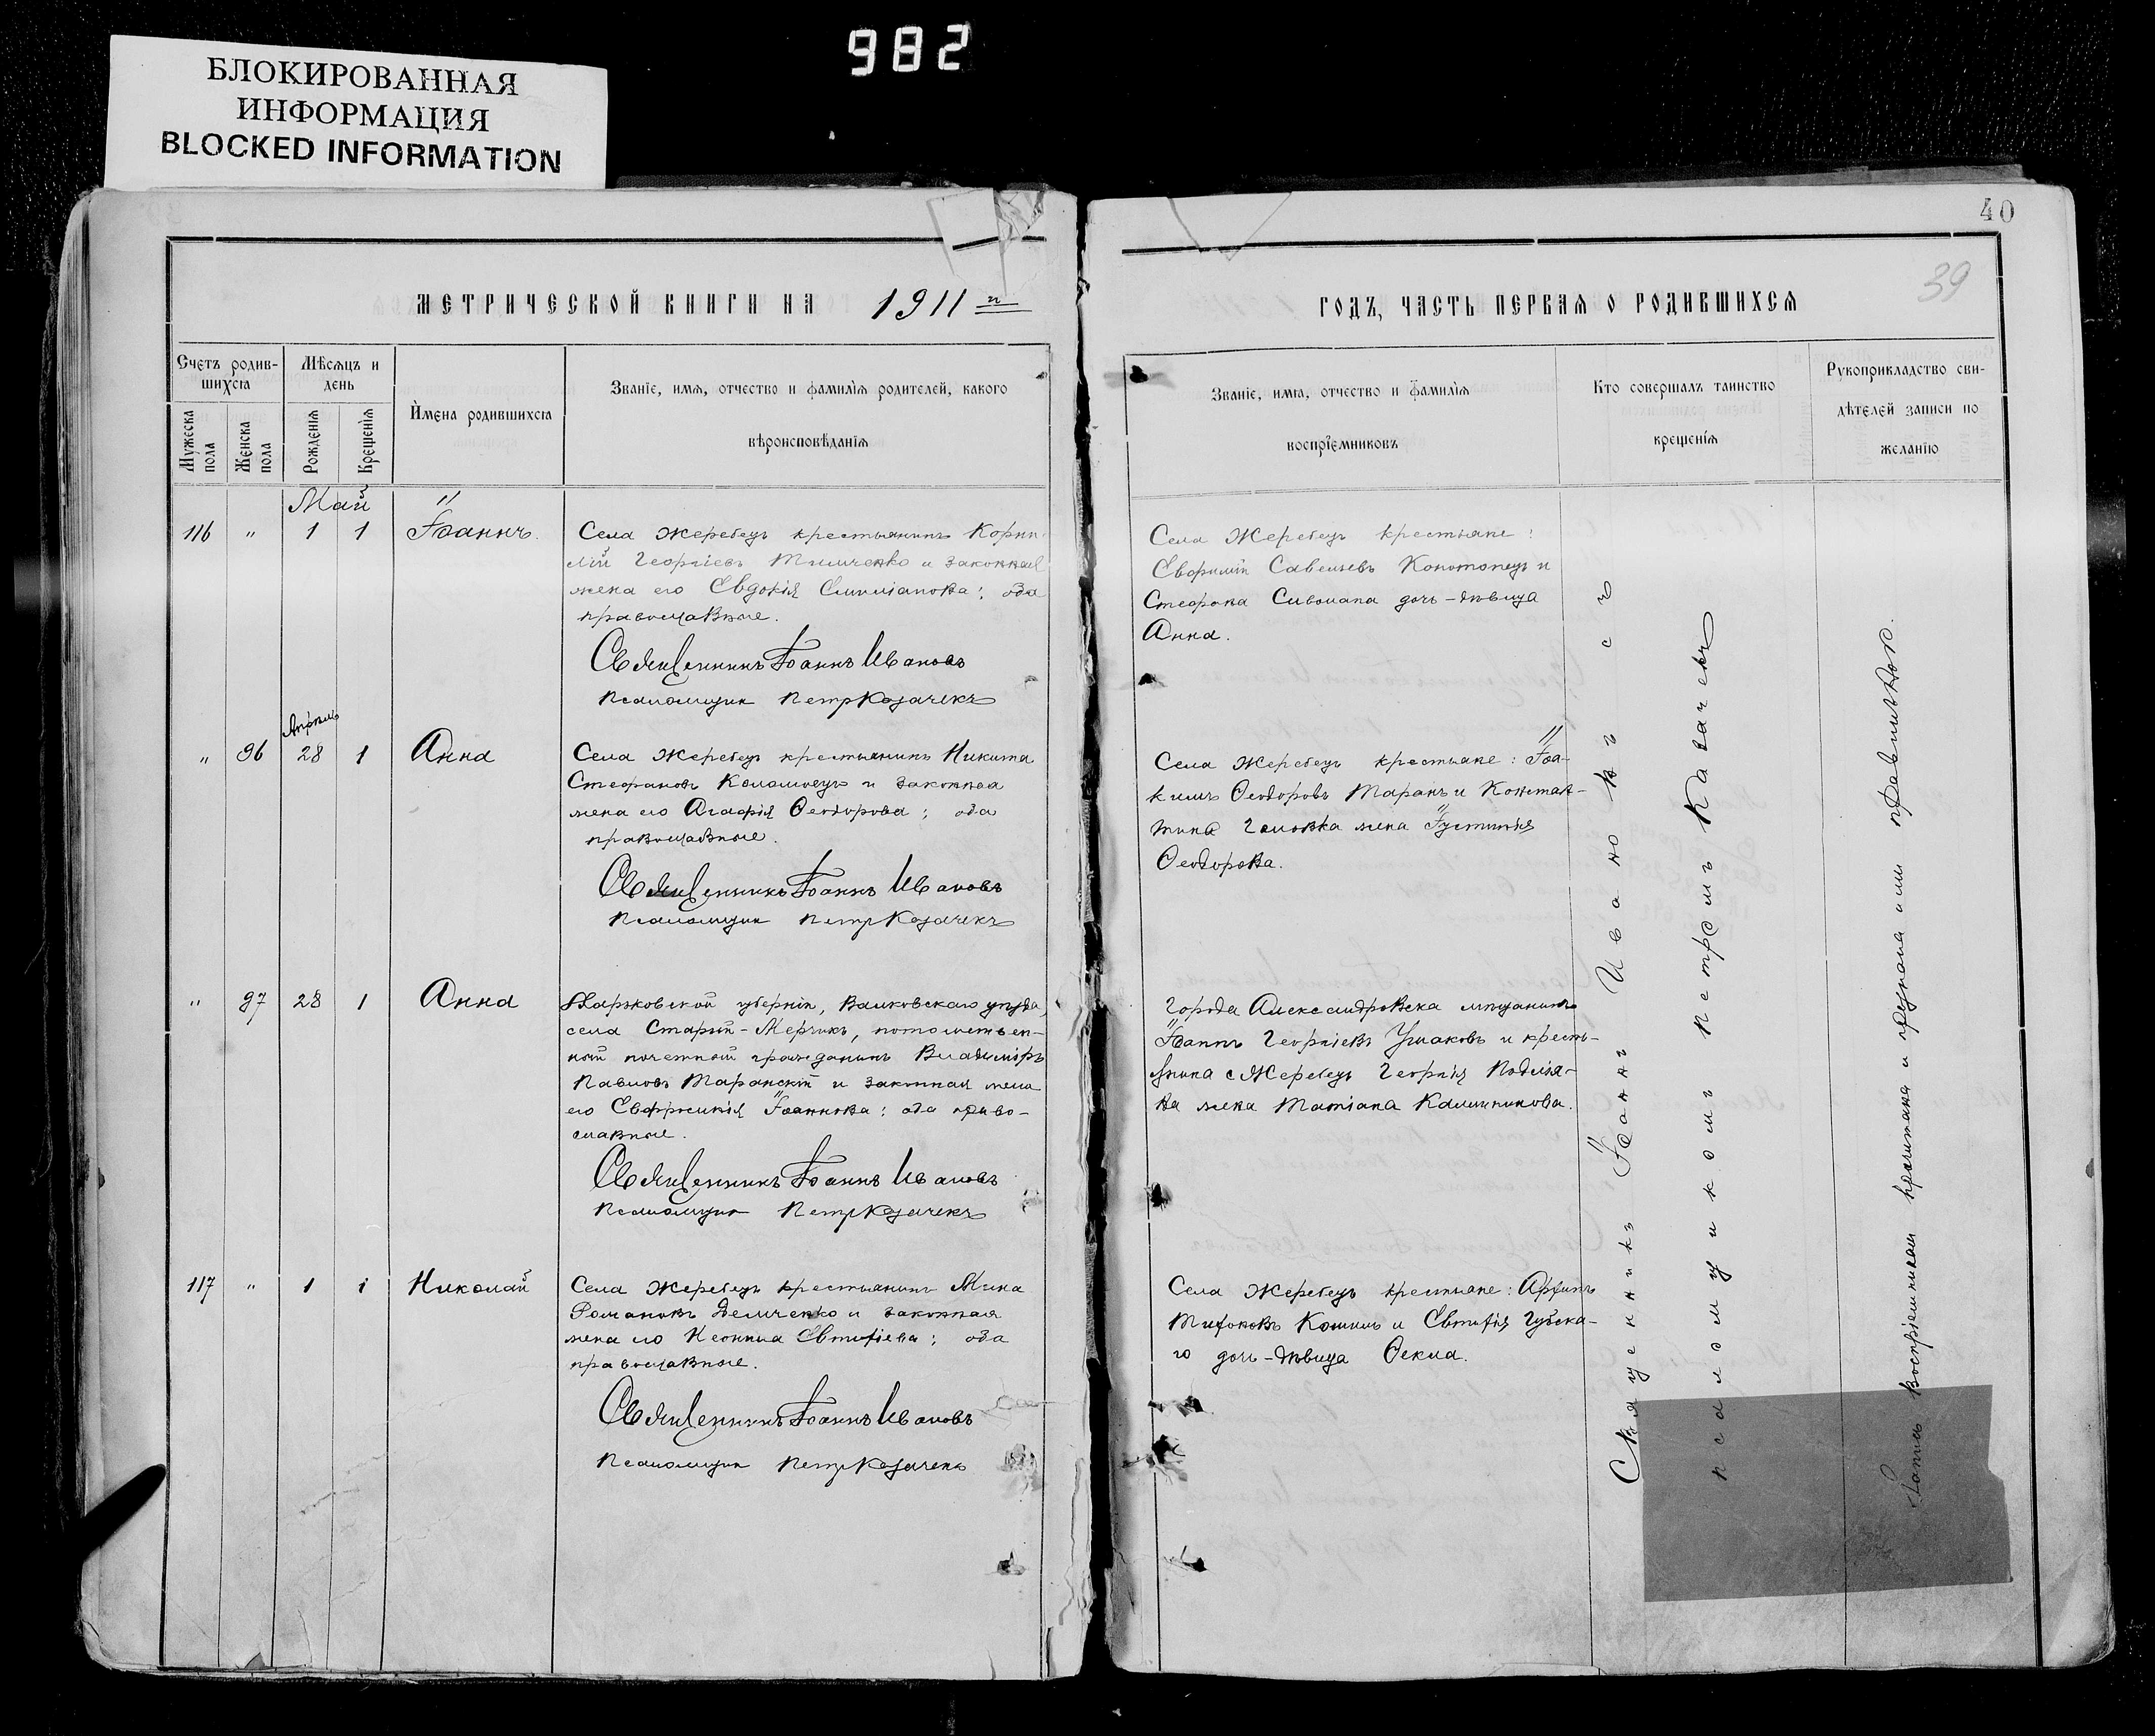 982
БЛОКИРОВАННАЯ
ИНФОРМАЦИЯ
BLOCKED INFORMATION
40
39
МЕТРИЧЕСКОЙ КНИГИ НА 1911 г
ГОДЪ, ЧАСТЬ ПЕРВАЯ О РОДИВШИХСЯ
Счетъ родив-
шихся
Мужеска
пола
Женска
пола
Мѣсяцъ и
день
Рожденія
Крещенія
Имена родившихся
Званіе, имя, отчество и фамилія родителей, какого
вѣроисповѣданія
Званіе, имя, отчество и фамилія
воспріемниковъ
Кто совершалъ таинство
крещенія
Рукоприкладство сви-
дѣтелей записи по
желанію
Май
116 " 1 1 Іоаннъ.
Села Жеребецъ крестьянинъ Корни-
лій Георгіевъ Тимченко и законная
жена его Евдокія Симиіанова; оба
православные.
Священникъ Іоаннъ Ивановъ
Псаломщик Петр Козачекъ
Села Жеребецъ крестьяне:
Евфимій Савельевъ Конотопецъ и
Стефана Сивомапа дочь-дѣвица
Анна.
Апрѣль
" 96 28 1 Анна
Села Жеребецъ крестьянинъ Никита
Стефановъ Коломоецъ и законная
жена его Агафія Ѳеодорова; оба
православные.
Священникъ Іоаннъ Ивановъ
Псаломщик Петр Козачекъ
Села Жеребецъ крестьяне: Іоа-
кимъ Ѳеодоровъ Таранъ и Констан-
тина Головка жена Іустинія
Ѳеодорова.
" 97 28 1 Анна
Харьковской губерніи, Валковскаго уѣзда,
села Старый-Мерчикъ, потомствен-
ный почетный гражданинъ Владиміръ
Павловъ Таранскій и законная жена
его Евфросинія Іоаннова; оба право-
славные.
Священникъ Іоаннъ Ивановъ
Псаломщик Петр Козачекъ
Города Александровска мѣщанинъ
Іоаннъ Георгіевъ Ушаковъ и кресть-
янина с Жеребецъ Георгія
жена Татіана Калинникова.
117 " 1 1 Николай
Села Жеребецъ крестьянинъ Мина
Романовъ Демченко и законная
жена его Неонила Евтихіева; оба
православные.
Священникъ Іоаннъ Ивановъ
Псаломщик Петр Козачекъ
Села Жеребецъ крестьяне: Архипъ
Тихоновъ Кошинъ и Евтихія Губска-
го дочь-дѣвица Ѳекла.
Священникъ Іоаннъ Ивановъ съ
псаломщикомъ Петромъ Казачекъ
Запись воспріемникам прочитана и признана ими правильною.